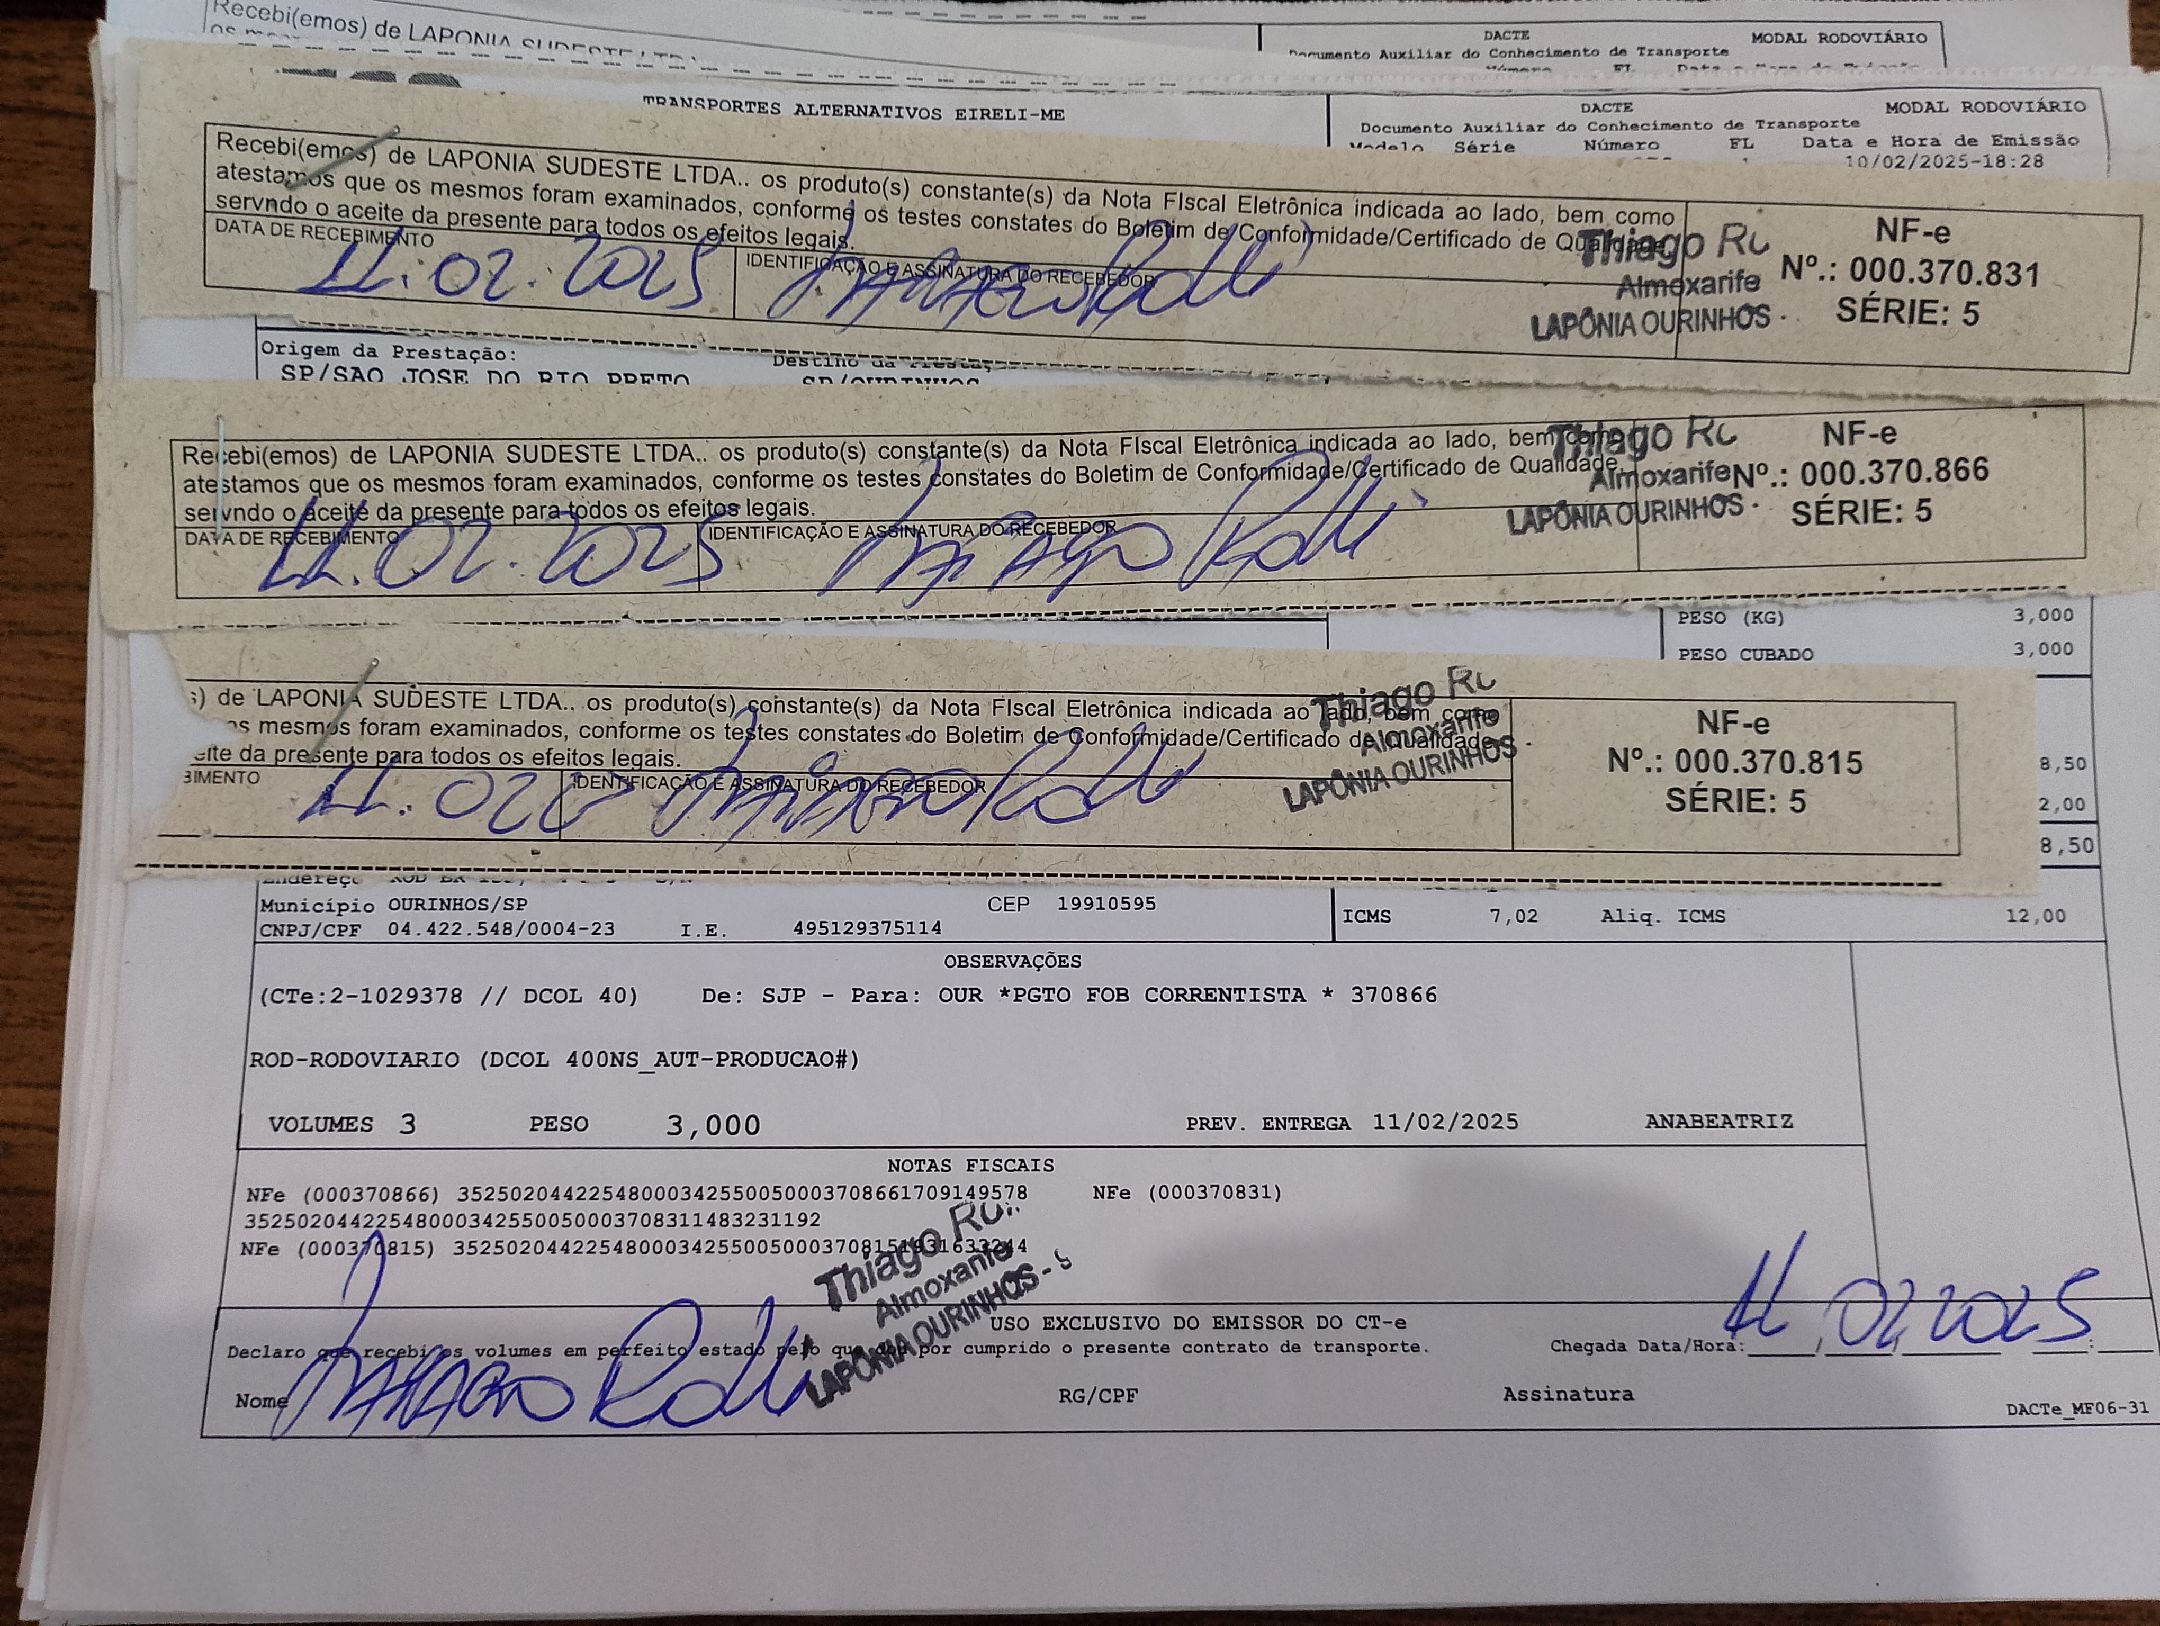 Recebi(emos) de LAPONIA SUDESTE LTDA
DACTE MODAL RODOVIÁRIO
Documento Auxiliar do Conhecimento de Transporte
TRANSPORTES ALTERNATIVOS EIRELI-ME
DACTE MODAL RODOVIÁRIO
Documento Auxiliar do Conhecimento de Transporte
Modelo Série Número FL Data e Hora de Emissão
10/02/2025-18:28
Recebi(emos) de LAPONIA SUDESTE LTDA.. os produto(s) constante(s) da Nota FIscal Eletrônica indicada ao lado, bem como
atestamos que os mesmos foram examinados, conforme os testes constates do Boletim de Conformidade/Certificado de Qualidade
servndo o aceite da presente para todos os efeitos legais.
DATA DE RECEBIMENTO
11.02.2025
IDENTIFICAÇÃO E ASSINATURA DO RECEBEDOR
Thiago
Almoxarife
LAPÔNIA OURINHOS -
NF-e
Nº.: 000.370.831
SÉRIE: 5
Origem da Prestação: Destino da Prestaç
SP/SAO JOSE DO RIO PRETO SP/OURINHOS
Recebi(emos) de LAPONIA SUDESTE LTDA.. os produto(s) constante(s) da Nota FIscal Eletrônica indicada ao lado, bem como
atestamos que os mesmos foram examinados, conforme os testes constates do Boletim de Conformidade/Certificado de Qualidade
servndo o aceite da presente para todos os efeitos legais.
DATA DE RECEBIMENTO
11.02.2025
IDENTIFICAÇÃO E ASSINATURA DO RECEBEDOR
Thiago
Almoxarife
LAPÔNIA OURINHOS -
NF-e
Nº.: 000.370.866
SÉRIE: 5
PESO (KG) 3,000
PESO CUBADO 3,000
s) de LAPONIA SUDESTE LTDA.. os produto(s) constante(s) da Nota FIscal Eletrônica indicada ao lado, bem como
os mesmos foram examinados, conforme os testes constates do Boletim de Conformidade/Certificado de Qualidade
eite da presente para todos os efeitos legais.
BIMENTO
11.02
IDENTIFICAÇÃO E ASSINATURA DO RECEBEDOR
Thiago
Almoxarife
LAPÔNIA OURINHOS -
NF-e
Nº.: 000.370.815
SÉRIE: 5
8,50
2,00
8,50
Endereço
Município OURINHOS/SP CEP 19910595
CNPJ/CPF 04.422.548/0004-23 I.E. 495129375114
ICMS 7,02 Aliq. ICMS 12,00
OBSERVAÇÕES
(CTe:2-1029378 // DCOL 40) De: SJP - Para: OUR *PGTO FOB CORRENTISTA * 370866
ROD-RODOVIARIO (DCOL 400NS_AUT-PRODUCAO#)
VOLUMES 3 PESO 3,000 PREV. ENTREGA 11/02/2025 ANABEATRIZ
NOTAS FISCAIS
NFe (000370866) 35250204422548000342550050003708661709149578 NFe (000370831)
35250204422548000342550050003708311483231192
NFe (000370815)
Thiago
Almoxarife
LAPÔNIA OURINHOS - S
11 02 2025
USO EXCLUSIVO DO EMISSOR DO CT-e
Declaro que recebi os volumes em perfeito estado pelo que dou por cumprido o presente contrato de transporte. Chegada Data/Hora:
Nome RG/CPF Assinatura
DACTe_MF06-31